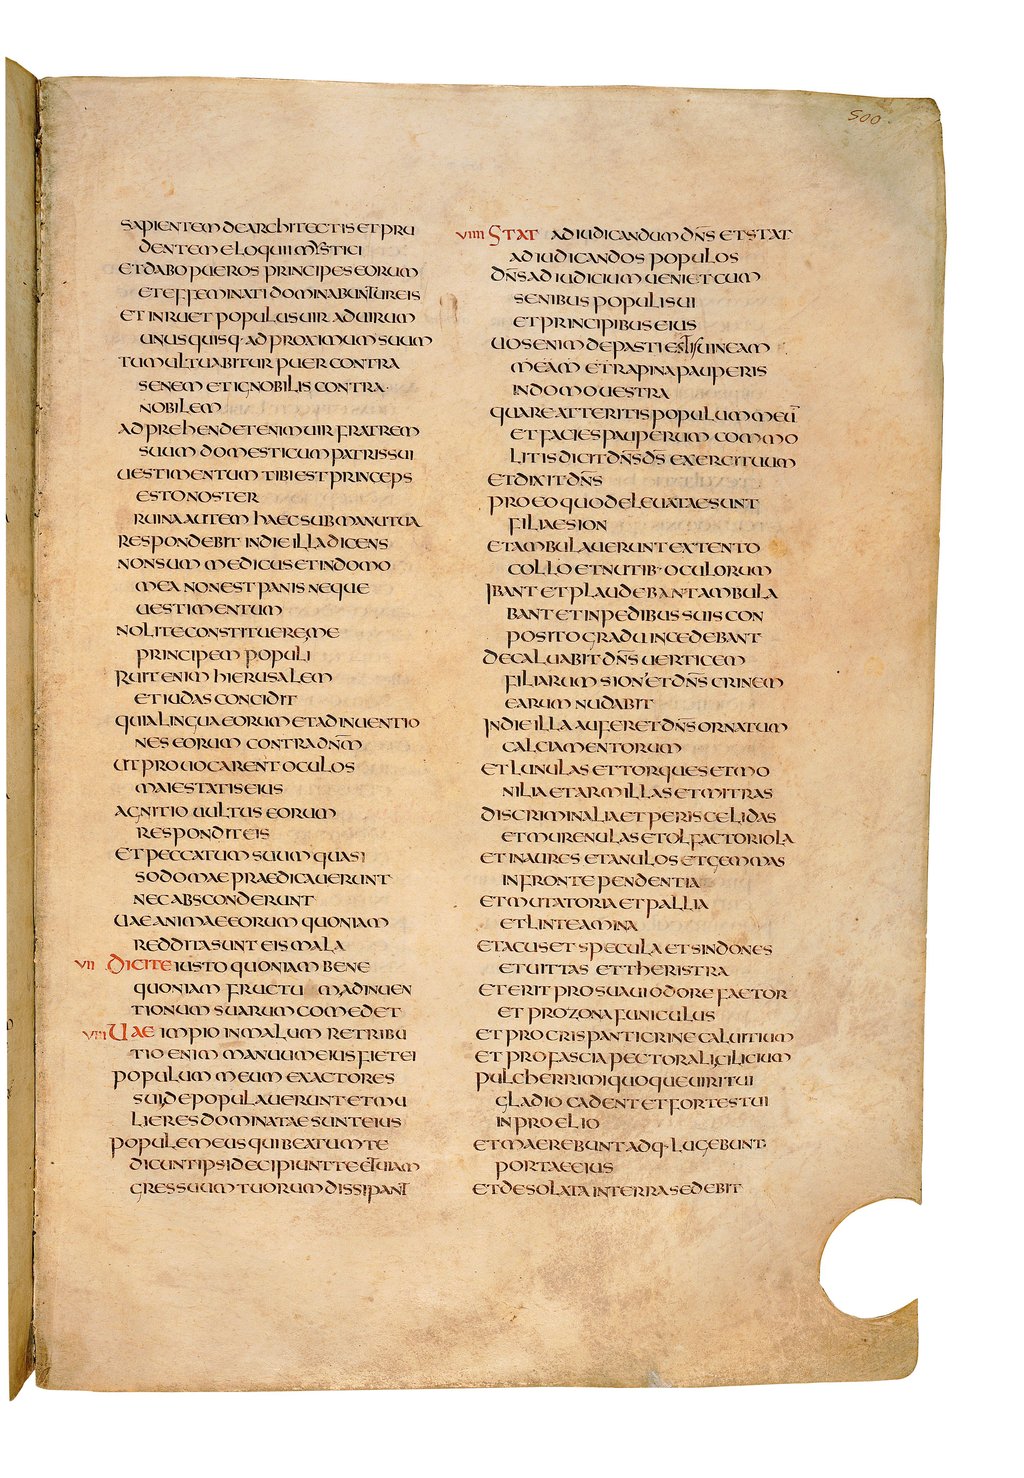 500
SAPIENTEM DE ARCHITECTIS ET PRU
DENTEM ELOQUII MYSTICI
ET DABO PUEROS PRINCIPES EORUM
ET EFFEMINATI DOMINABUNTUR EIS
ET INRUET POPULUS UIR AD UIRUM
UNUSQUISQ· AD PROXIMUM SUUM
TUMULTUABITUR PUER CONTRA
SENEM ET IGNOBILIS CONTRA
NOBILEM
ADPREHENDET ENIM UIR FRATREM
SUUM DOMESTICUM PATRIS SUI
UESTIMENTUM TIBI EST PRINCEPS
ESTO NOSTER
RUINA AUTEM HAEC SUB MANU TUA
RESPONDEBIT IN DIE ILLA DICENS
NON SUM MEDICUS ET IN DOMO
MEA NON EST PANIS NEQUE
UESTIMENTUM
NOLITE CONSTITUERE ME
PRINCIPEM POPULI
RUIT ENIM HIERUSALEM
ET IUDAS CONCIDIT
QUIA LINGUA EORUM ET ADINUENTIO
NES EORUM CONTRA DN̄M
UT PROUOCARENT OCULOS
MAIESTATIS EIUS
AGNITIO UULTUS EORUM
RESPONDIT EIS
ET PECCATUM SUUM QUASI
SODOMAE PRAEDICAUERUNT
NEC ABSCONDERUNT
UAE ANIMAE EORUM QUONIAM
REDDITA SUNT EIS MALA
VII DICITE IUSTO QUONIAM BENE
QUONIAM FRUCTUM ADINUEN
TIONUM SUARUM COMEDET
VIII UAE IMPIO IN MALUM RETRIBU
TIO ENIM MANUUM EIUS FIET EI
POPULUM MEUM EXACTORES
SUI DEPOPULAUERUNT ET MU
LIERES DOMINATAE SUNT EIUS
POPULE MEUS QUI BEATUM TE
DICUNT IPSI DECIPIUNT TE ET UIAM
GRESSUUM TUORUM DISSIPANT
VIIII STAT AD IUDICANDUM DN̄S ET STAT
AD IUDICANDOS POPULOS
DN̄S AD IUDICIUM UENIET CUM
SENIBUS POPULI SUI
ET PRINCIPIBUS EIUS
UOS ENIM DEPASTI ESTIS UINEAM
MEAM ET RAPINA PAUPERIS
IN DOMO UESTRA
QUARE ATTERITIS POPULUM MEŪ
ET FACIES PAUPERUM COMMO
LITIS DICIT DN̄S D̄S EXERCITUUM
ET DIXIT DN̄S
PRO EO QUOD ELEUATAE SUNT
FILIAE SION
ET AMBULAUERUNT EXTENTO
COLLO ET NUTIB· OCULORUM
IBANT ET PLAUDEBANT AMBULA
BANT ET IN PEDIBUS SUIS CON
POSITO GRADU INCEDEBANT
DECALUABIT DN̄S UERTICEM
FILIARUM SION ET DN̄S CRINEM
EARUM NUDABIT
IN DIE ILLA AUFERET DN̄S ORNATUM
CALCIAMENTORUM
ET LUNULAS ET TORQUES ET MO
NILIA ET ARMILLAS ET MITRAS
DISCRIMINALIA ET PERISCELIDAS
ET MURENULAS ET OLFACTORIOLA
ET INAURES ET ANULOS ET GEMMAS
IN FRONTE PENDENTIA
ET MUTATORIA ET PALLIA
ET LINTEAMINA
ET ACUS ET SPECULA ET SINDONES
ET UITTAS ET THERISTRA
ET ERIT PRO SUAUI ODORE FAETOR
ET PRO ZONA FUNICULUS
ET PRO CRISPANTI CRINE CALUITIUM
ET PRO FASCIA PECTORALI CILICIUM
PULCHERRIMI QUOQUE UIRI TUI
GLADIO CADENT ET FORTES TUI
IN PROELIO
ET MAEREBUNT ADQ· LUGEBUNT
PORTAE EIUS
ET DESOLATA IN TERRA SEDEBIT